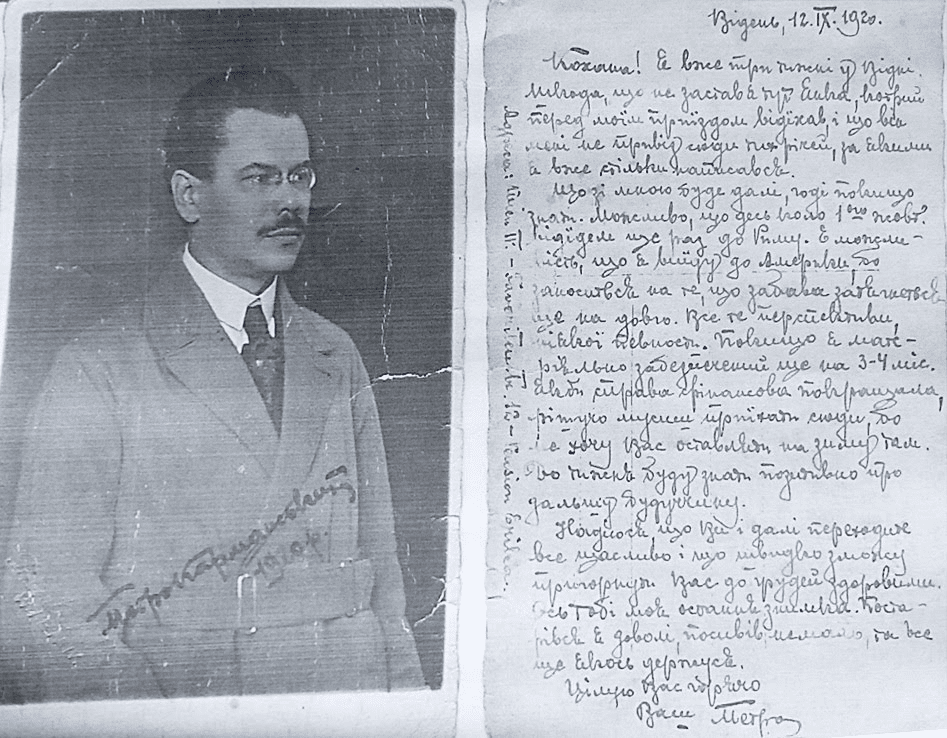 Петро Карманський
1920 р.
Відень, 12.IX.1920.
Кохана! Я вже три тижні у Відні.
Шкода, що не застав тут Яцка, котрий
перед моїм приїздом відїхав, і що він
мені не привіз сюди папірків, за якими
я вже стільки написався.
Що зі мною буде далі, годі покищо
знати. Можливо, що десь коло 1ого жовт.
відїдем ще раз до Риму. Є можли-
вість, що я виїду до Америки, бо
заноситься на те, що забава затягнеться
ще на довго. Все те перспективи,
ніякої певности. Покищо я мате-
ріяльно забезпечений ще на 3-4 міс.
Якби справа фінансова погіршала,
мусиш приїхати сюди, бо
не хочу Вас оставляти на зиму там.
До тижня буду знати позитивно про
дальшу будучину.
Надіюся, що Ви і далі переходите
все щасливо і що швидко зможу
пригорнути Вас до грудей здоровими.
Ось тобі моя остання знимка. Поста-
рівся я доволі, посивів немало, та все
ще якось держуся.
Цілую Вас гаряче
Ваш Петро
Адреса: Wien II. – 13 – Pension